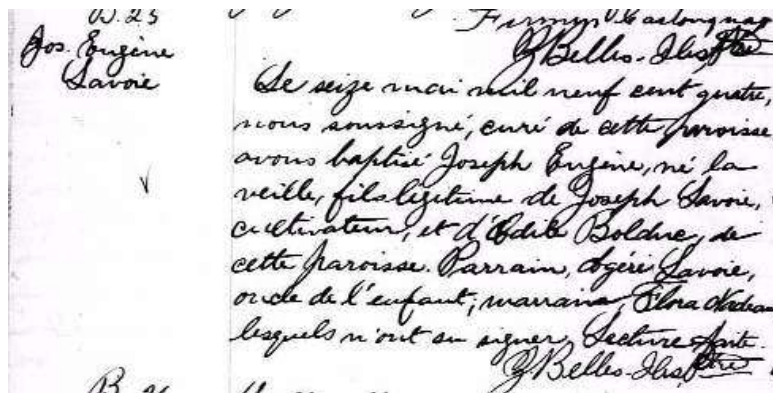 B. 25
Firmin Castonguay
J Belles-Isles ptre
Jos. Eugène
Savoie
Le seize mai mil neuf cent quatre,
nous soussigné, curé de cette paroisse
avons baptisé Joseph Eugène, né la
veille, fils légitime de Joseph Savoie,
cultivateur, et d'Odile Bolduc, de
cette paroisse. Parrain, Ogéri Savoie,
oncle de l'enfant; marraine, Flora Nadeau
lesquels n'ont su signer. Lecture faite.
J Belles-Isles, ptre
B. 26